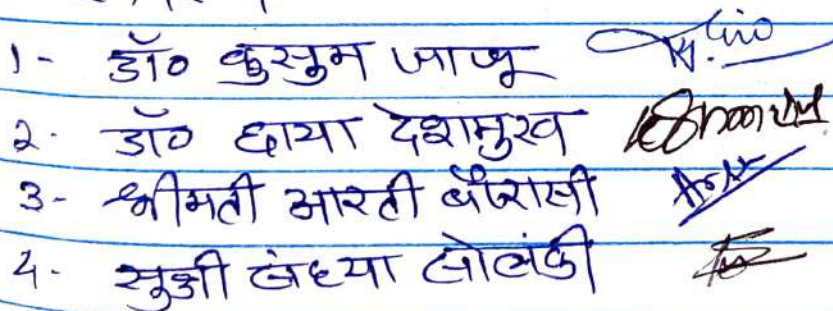 1- डॉ० कुसुम जाजू
2- डॉ० छाया देशमुख
3- श्रीमती आरती चौरासी
4- सुश्री संध्या सोलंकी